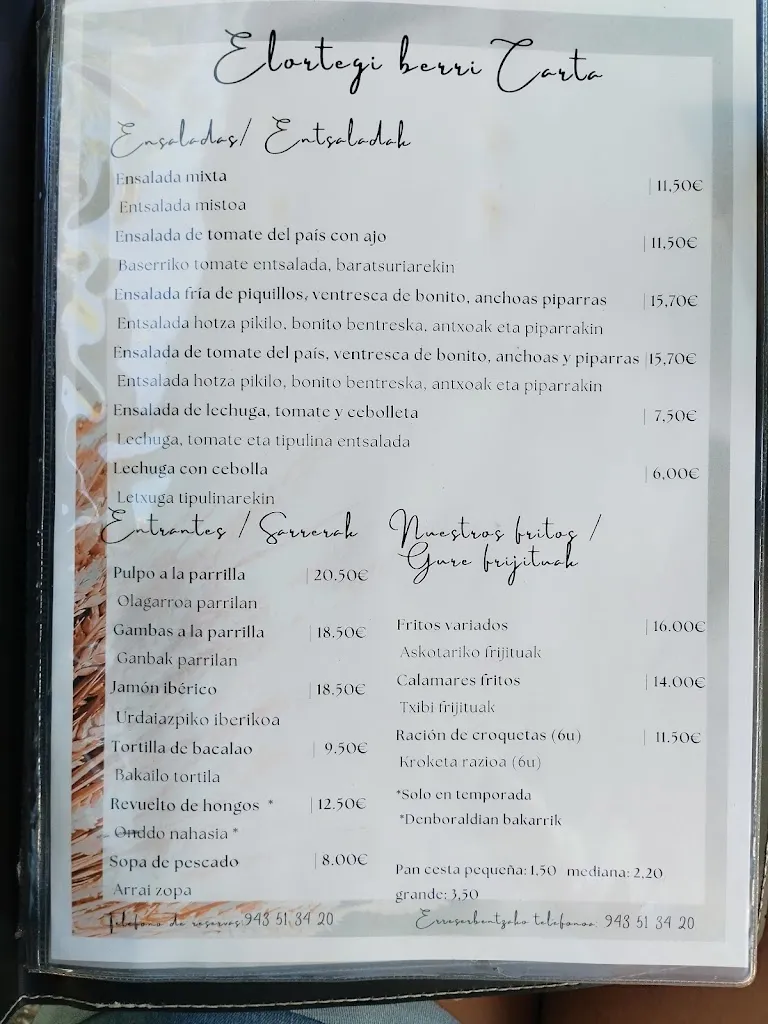 Elortegi berri Carta
Ensaladas/ Entsaladak
Ensalada mixta | 11,50€
Entsalada mistoa
Ensalada de tomate del país con ajo | 11,50€
Baserriko tomate entsalada, baratsuriarekin
Ensalada fría de piquillos, ventresca de bonito, anchoas piparras | 15,70€
Entsalada hotza pikilo, bonito bentreska, antxoak eta piparrakin
Ensalada de tomate del país, ventresca de bonito, anchoas y piparras | 15,70€
Entsalada hotza pikilo, bonito bentreska, antxoak eta piparrakin
Ensalada de lechuga, tomate y cebolleta | 7,50€
Lechuga, tomate eta tipulina entsalada
Lechuga con cebolla | 6,00€
Letxuga tipulinarekin
Entrantes / Sarrerak
Pulpo a la parrilla | 20.50€
Olagarroa parrilan
Gambas a la parrilla | 18.50€
Ganbak parrilan
Jamón ibérico | 18.50€
Urdaiazpiko iberikoa
Tortilla de bacalao | 9.50€
Bakailo tortila
Revuelto de hongos * | 12.50€
Onddo nahasia *
Sopa de pescado | 8.00€
Arrai zopa
Nuestros fritos /
Gure frijituak
Fritos variados | 16.00€
Askotariko frijituak
Calamares fritos | 14.00€
Txibi frijituak
Ración de croquetas (6u) | 11.50€
Kroketa razioa (6u)
*Solo en temporada
*Denboraldian bakarrik
Pan cesta pequeña: 1,50 mediana: 2,20
grande: 3,50
Telefono de reservas: 943 51 34 20
Erreserbentzako telefonoa: 943 51 34 20